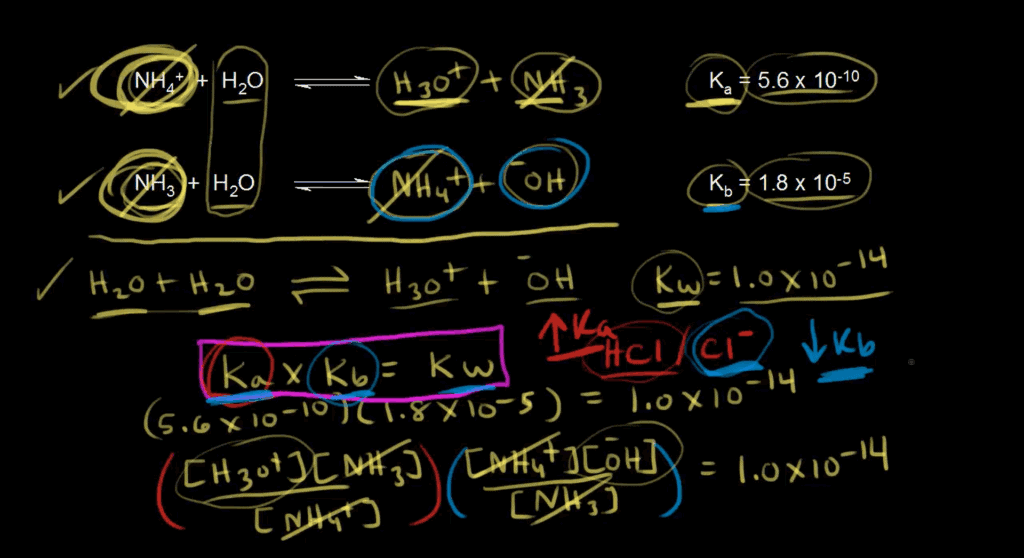 NH₄⁺ + H₂O ⇌ H₃O⁺ + NH₃ Kₐ = 5.6 x 10⁻¹⁰
NH₃ + H₂O ⇌ NH₄⁺ + ⁻OH K_b = 1.8 x 10⁻⁵
H₂O + H₂O ⇌ H₃O⁺ + ⁻OH Kw = 1.0 x 10⁻¹⁴
↑Ka HCl / Cl⁻ ↓Kb
Ka x Kb = Kw
(5.6 x 10⁻¹⁰)(1.8 x 10⁻⁵) = 1.0 x 10⁻¹⁴
([H₃O⁺][NH₃] / [NH₄⁺]) ([NH₄⁺][⁻OH] / [NH₃]) = 1.0 x 10⁻¹⁴